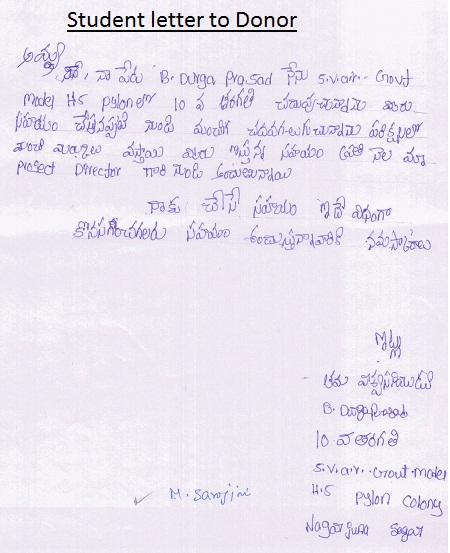 Student letter to Donor
అయ్యా,
నా పేరు B. Durga Prasad నేను S.V.A.I.R.. Govt
Model H.S Pylon లో 10 వ తరగతి చదువుచున్నాను మీరు
సహాయం చేస్తున్నప్పటి నుండి మంచిగ చదవగలుగుచున్నాను పరీక్షలలో
మంచి మార్కులు వస్తాయి మీరు ఇస్తున్న సహాయం ప్రతి నెల మా
Project Director గారి నుండి అందుతున్నాయి
నాకు చేసే సహాయం ఇదే విధంగా
కొనసాగించగలరు సహాయం నమస్కారాలు
ఇట్లు
తమ విశ్వసనీయుడు
B. Durgaprasad
10. వ తరగతి
S.V.A.I.R.. Govt. Model
H.S Pylon Colony
Nagarjuna Sagar
M. Sarojini